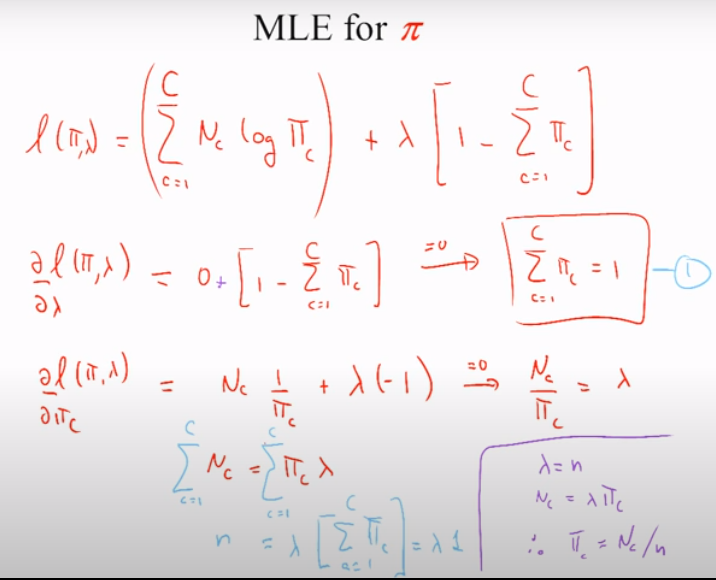 MLE for π
l(π,λ) = (∑_{c=1}^{C} N_c log π_c) + λ [1 - ∑_{c=1}^{C} π_c]
∂l(π,λ)/∂λ = 0 + [1 - ∑_{c=1}^{C} π_c] =0→ ∑_{c=1}^{C} π_c = 1 — ①
∂l(π,λ)/∂π_c = N_c 1/π_c + λ(-1) =0→ N_c/π_c = λ
∑_{c=1}^{C} N_c = ∑_{c=1}^{C} π_c λ
n = λ [∑_{c=1}^{C} π_c] = λ 1
λ = n
N_c = λ π_c
∴ π_c = N_c/n